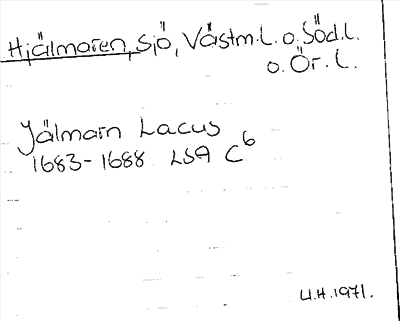 Hjälmaren, Sjö, Västm.L. o. Söd.L.
o. Ör. L.
Jälmarn Lacus
1683-1688 LSA C6
U.H. 1971.